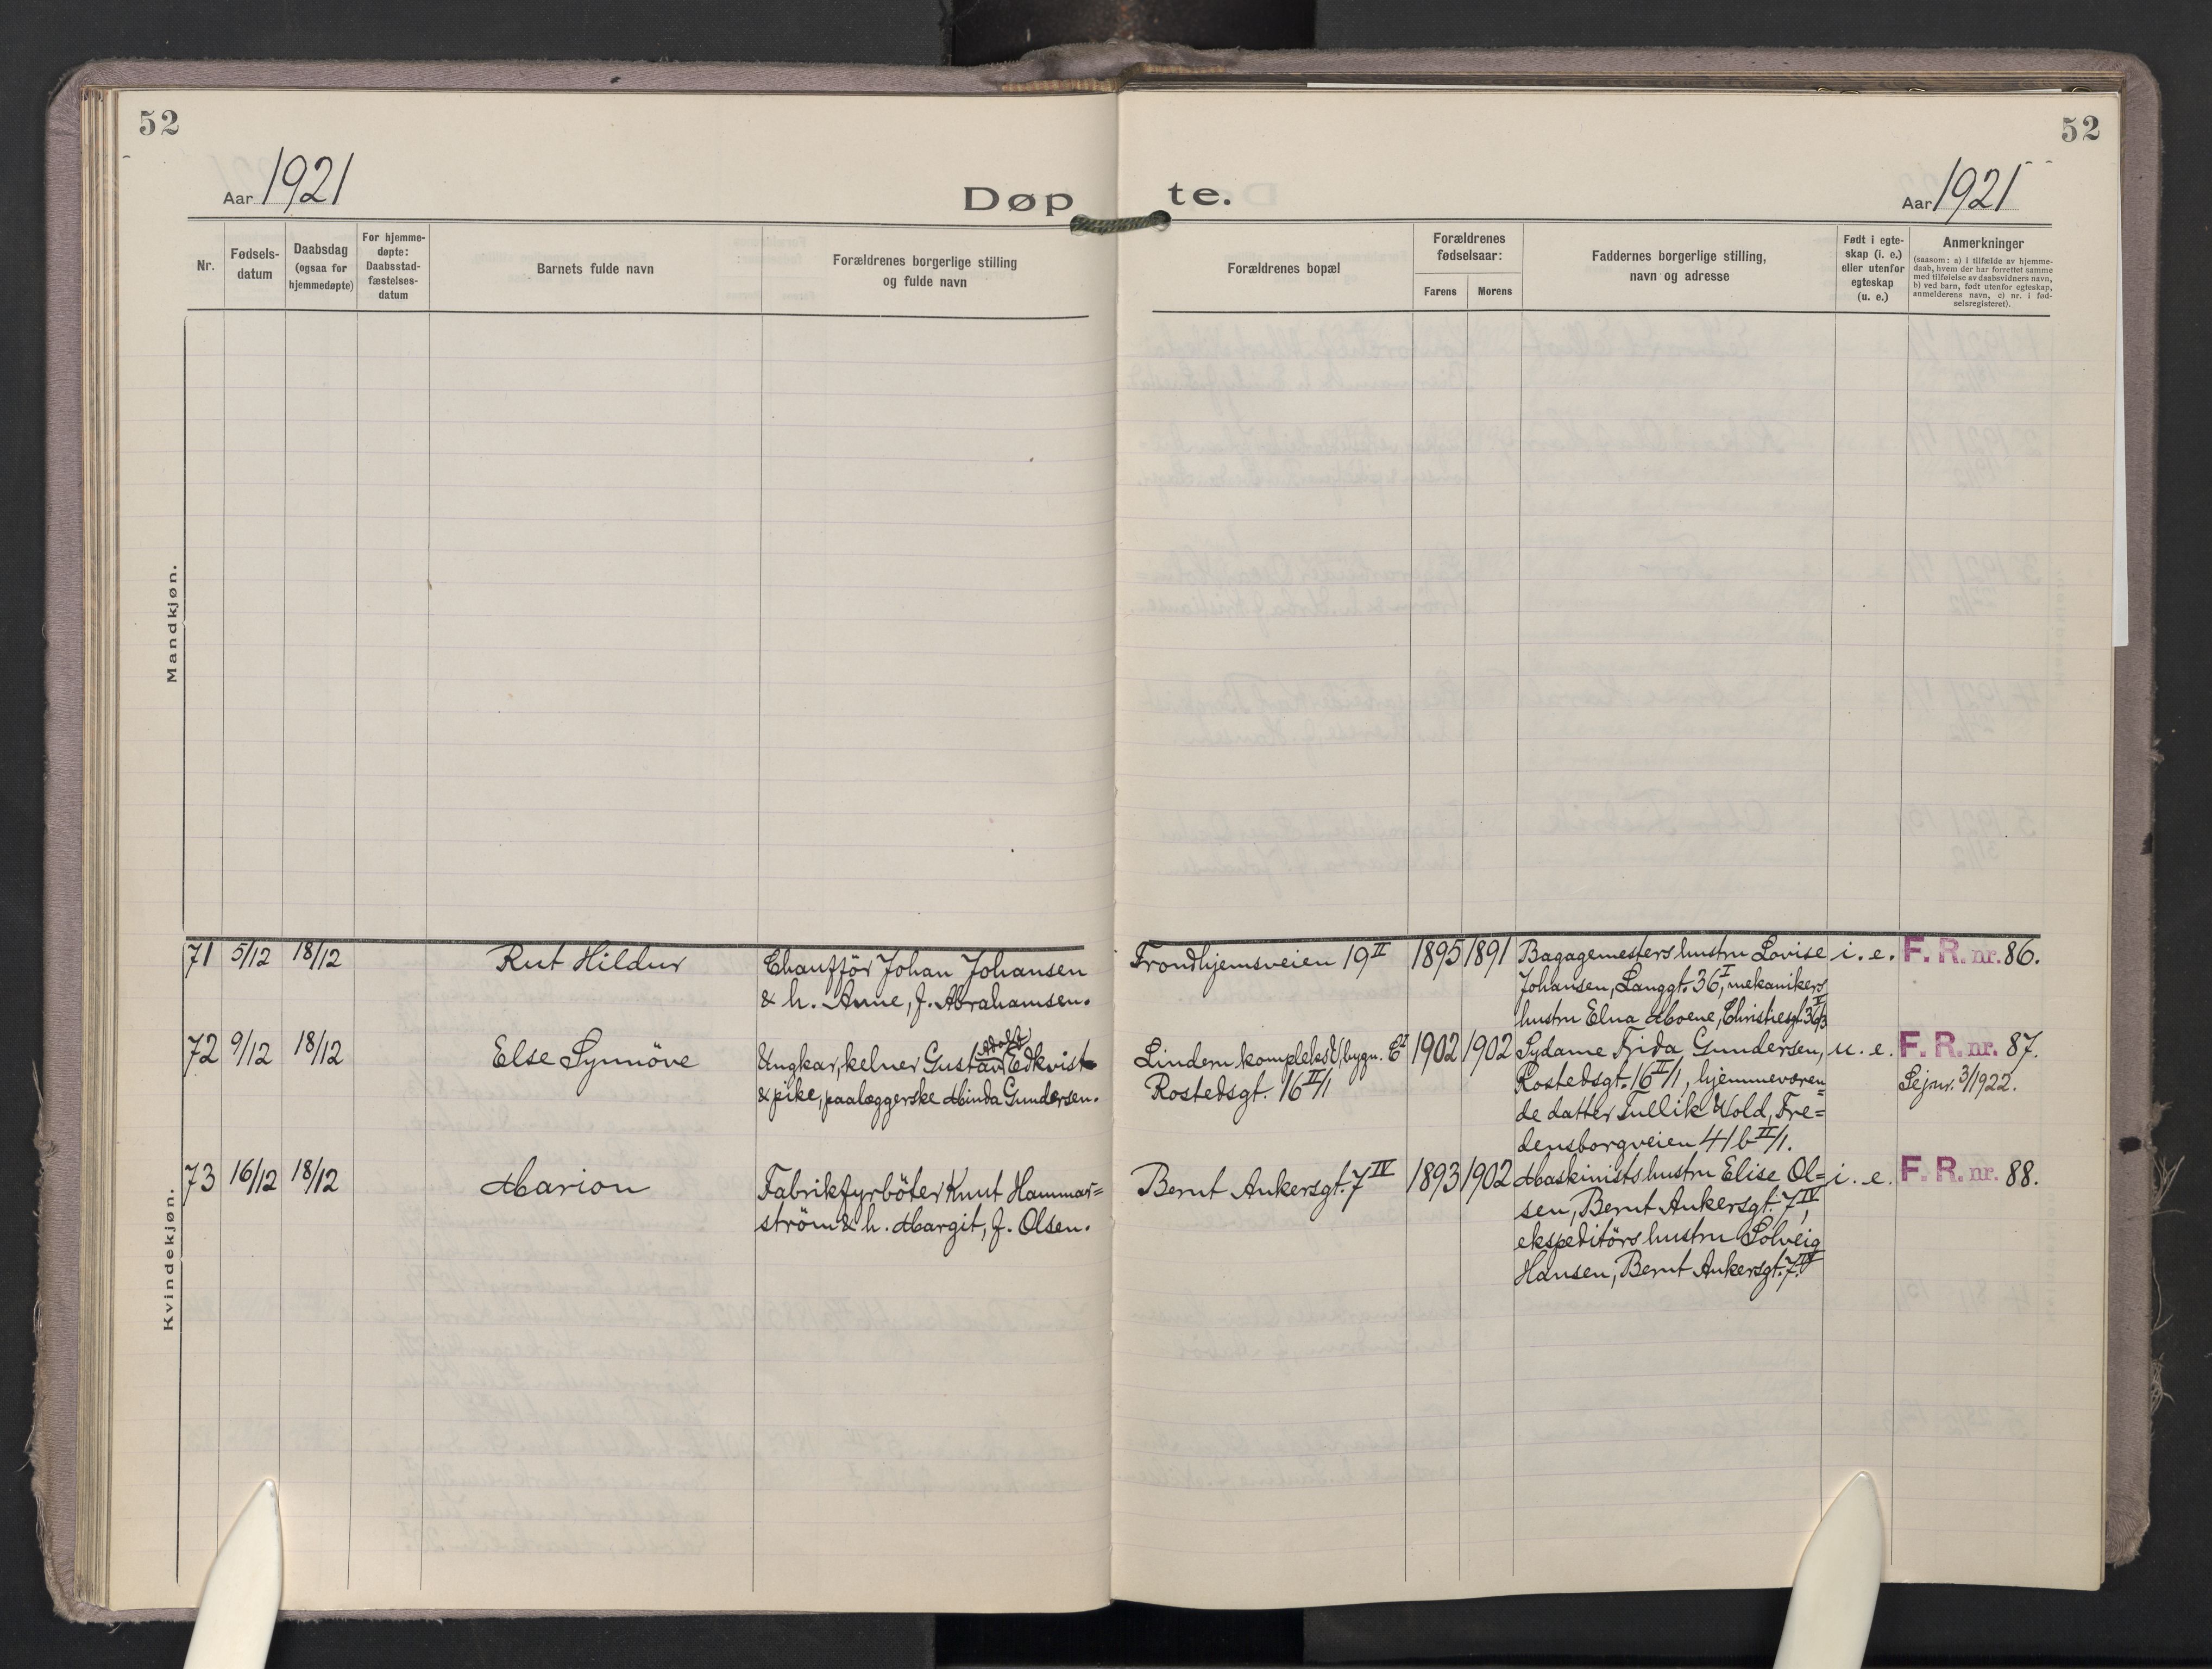 52
52
Aar 1921
Døp te.
Aar 1921
Nr.
Fødsels-
datum
Daabsdag
(ogsaa for
hjemmedøpte)
For hjemme-
døpte:
Daabsstad-
fæstelses-
datum
Barnets fulde navn
Forældrenes borgerlige stilling
og fulde navn
Forældrenes bopæl
Forældrenes
fødselsaar:
Farens
Morens
Faddernes borgerlige stilling,
navn og adresse
Født i egte-
skap (i. e.)
eller utenfor
egteskap
(u. e.)
Anmerkninger
(saasom: a) i tilfælde av hjemme-
daab, hvem der har forrettet samme
med tilføielse av daabsvidners navn,
b) ved barn, født utenfor egteskap,
anmelderens navn, c) nr. i fød-
selsregisteret).
Mandkjøn.
71 5/12 18/12 Rut Hildur
Chaufför Johan Johansen
& h. Anne, f. Abrahamsen.
Trondhjemsveien 19 II 1895 1891
Bagagemesters hustru Lovise
Johansen, Langgt. 36 I, mekanikers
hustru Elna Moene, Christiesgt. 36 I/3
i. e. F. R. nr. 86.
72 9/12 18/12 Else Synnöve
Adolf
Ungkar, kelner Gustav Edkvist
& pike, paalæggerske Minda Gundersen.
Lindern kompleks V, bygn. E I
Rostedsgt. 16 II/1
1902 1902
Sydame Frida Gundersen,
Rostedsgt. 16 II/1, hjemmeværen=
de datter Tullik Wold, Fre=
densborgveien 41 b II/1.
u. e. F. R. nr. 87.
Sejour. 3/1922.
73 16/12 18/12 Marion
Fabrikfyrböter Knut Hammar=
ström & h. Margit, f. Olsen.
Bernt Ankersgt. 7 IV 1893 1902
Maskinists hustru Elise Ol=
sen, Bernt Ankersgt. 7 IV,
ekspeditörs hustru Solveig
Hansen, Bernt Ankersgt. 7 IV
i. e. F. R. nr. 88.
Kvindekjøn.